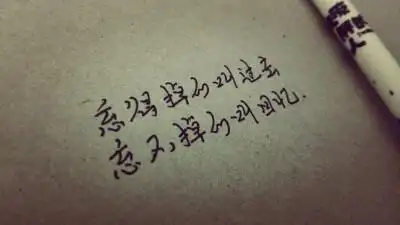 忘得掉的叫过去
忘不掉的叫回忆.